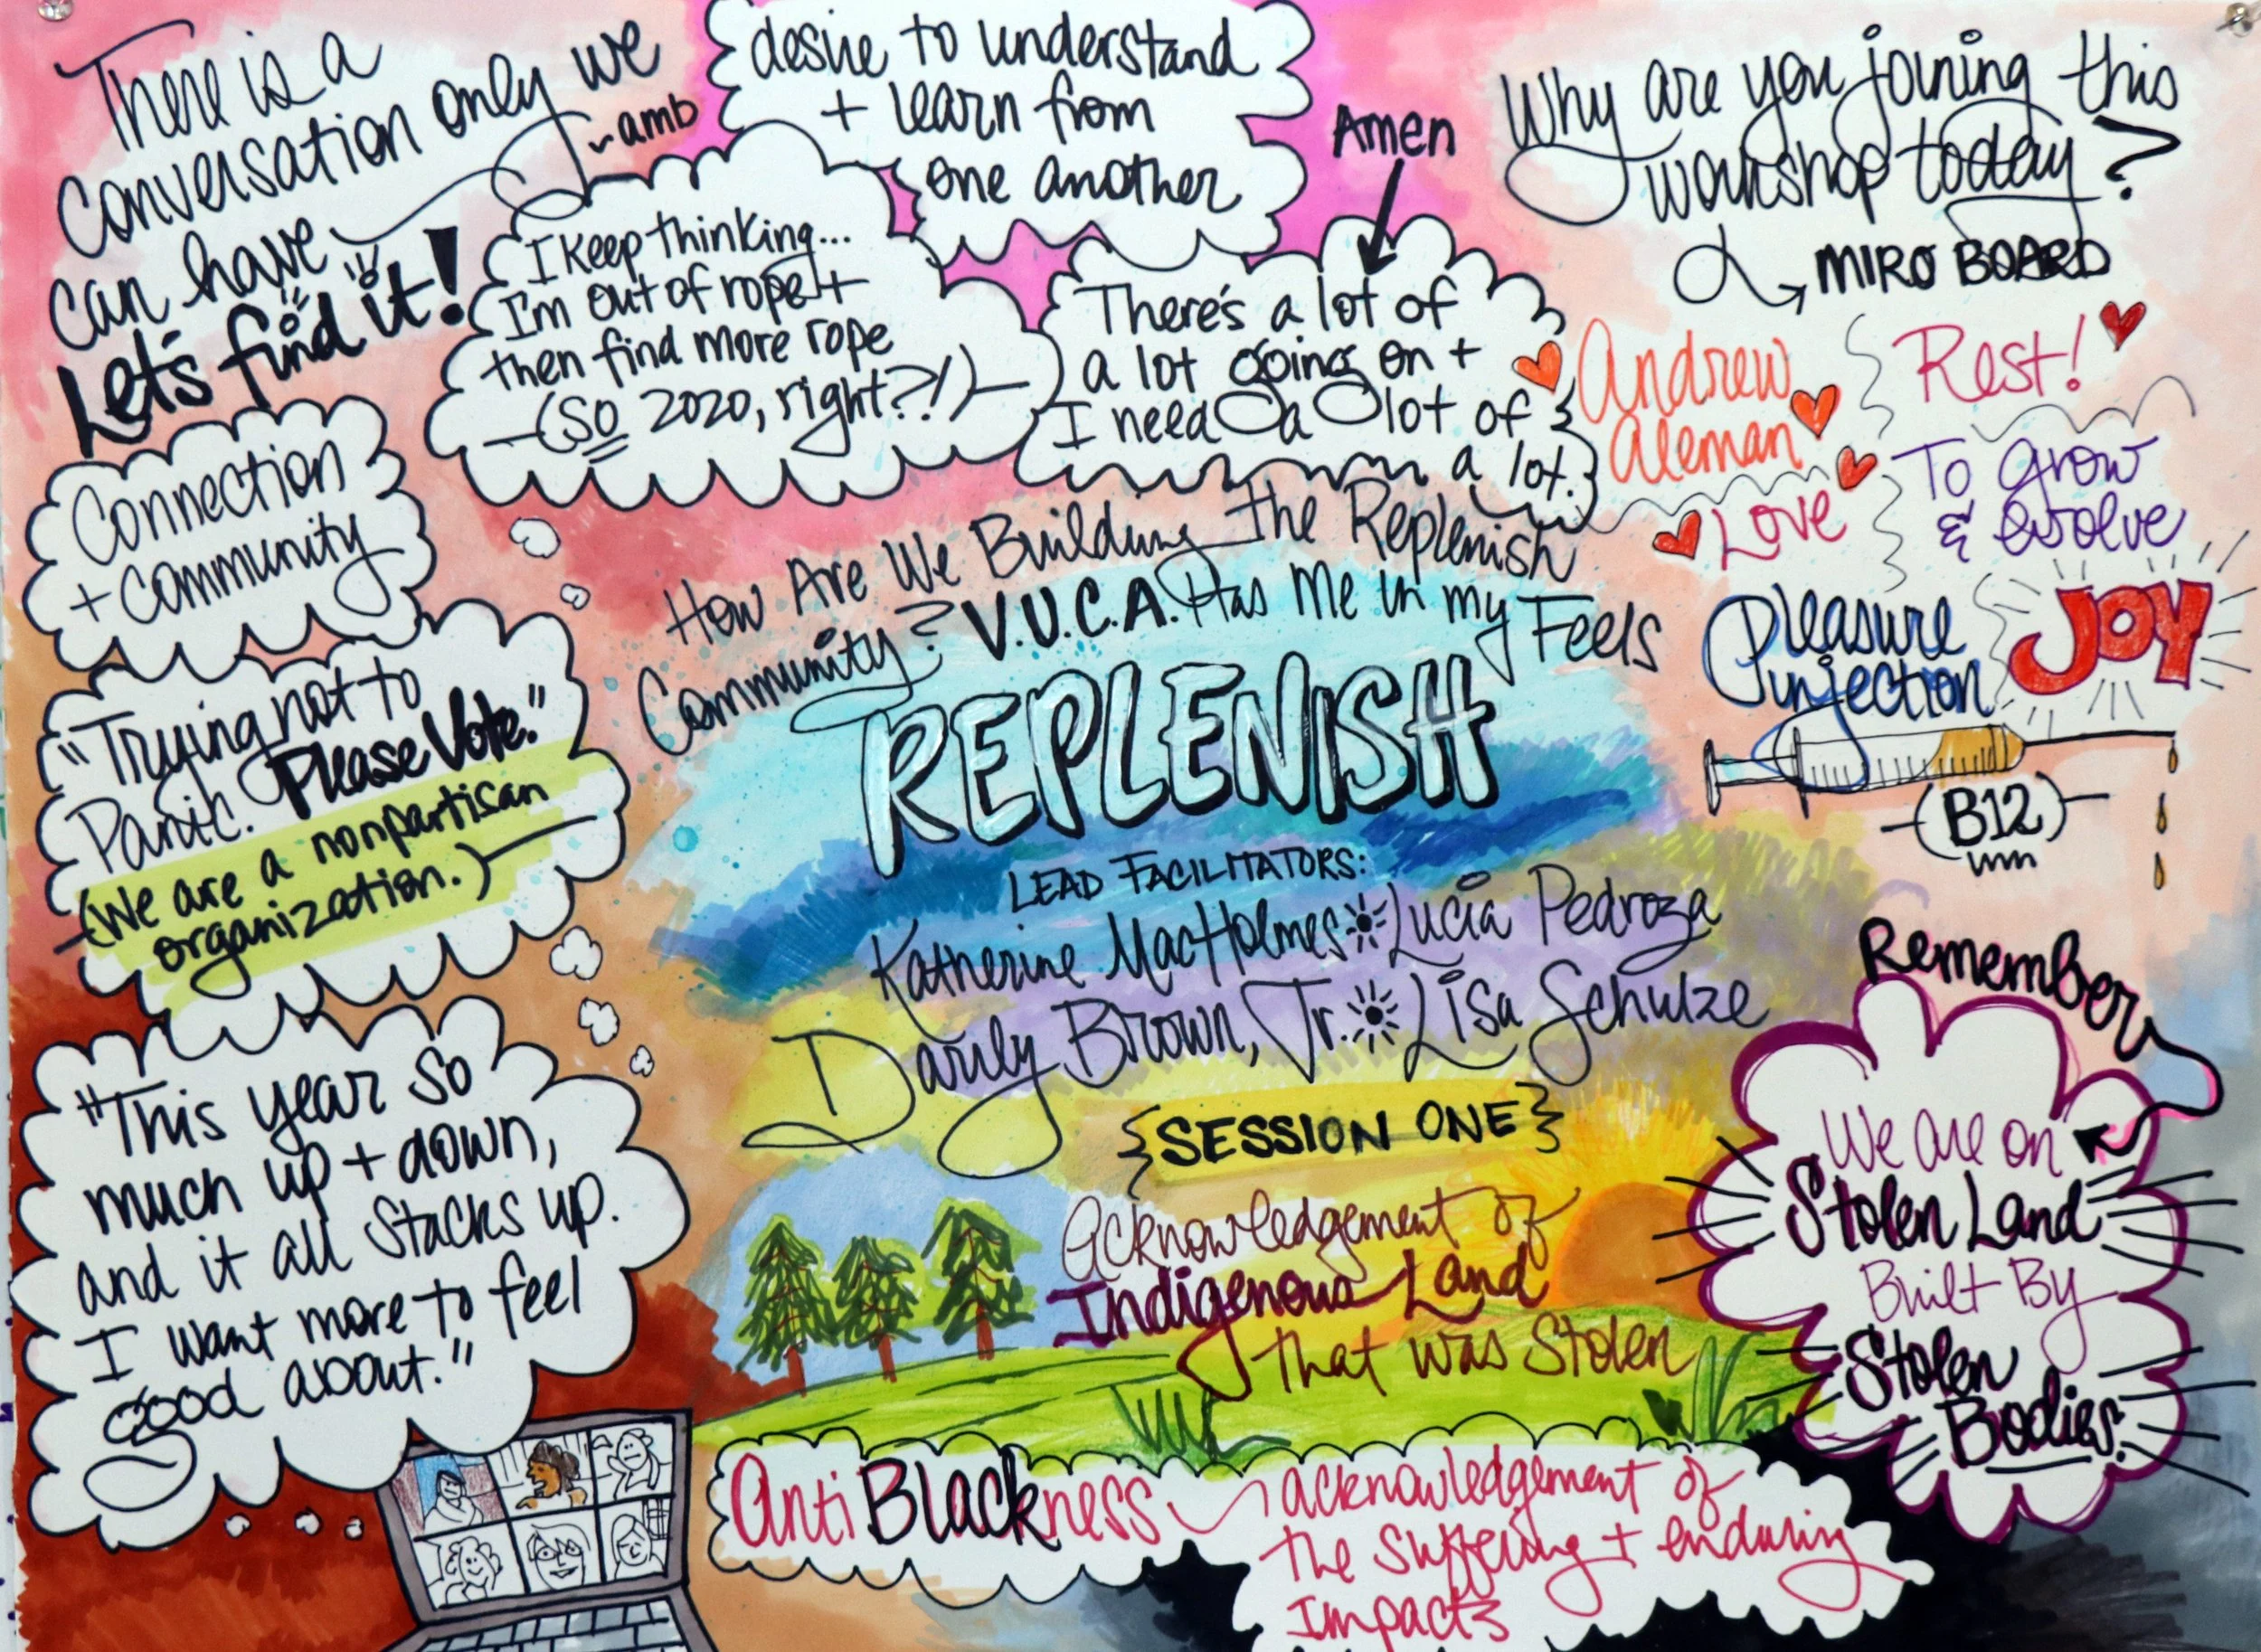 There is a
conversation only we
can have
~amb
Let's find it!
desire to understand
+ learn from
one another
I keep thinking...
I'm out of rope +
then find more rope
(So 2020, right?!)
Amen
There's a lot of
a lot going on +
I need a lot of
a lot.
Why are you joining this
workshop today?
MIRO BOARD
Andrew
Aleman
Rest!
Love
To Grow
& evolve
Pleasure
injection
JOY
(B12)
Connection
+ community
"Trying not to
Panic. Please Vote."
(We are a nonpartisan
organization.)
"This year so
much up + down,
and it all stacks up.
I want more to feel
good about."
How Are We Building the Replenish
Community? V.U.C.A. Has Me in my Feels
REPLENISH
LEAD FACILITATORS:
Katherine MacHolmes Lucia Pedroza
Darily Brown, Jr. Lisa Schulze
{SESSION ONE}
acknowledgement of
Indigenous Land
that was Stolen
Remember
We are on
Stolen Land
Built By
Stolen
Bodies.
Anti Blackness
acknowledgement of
the suffering + enduring
Impacts